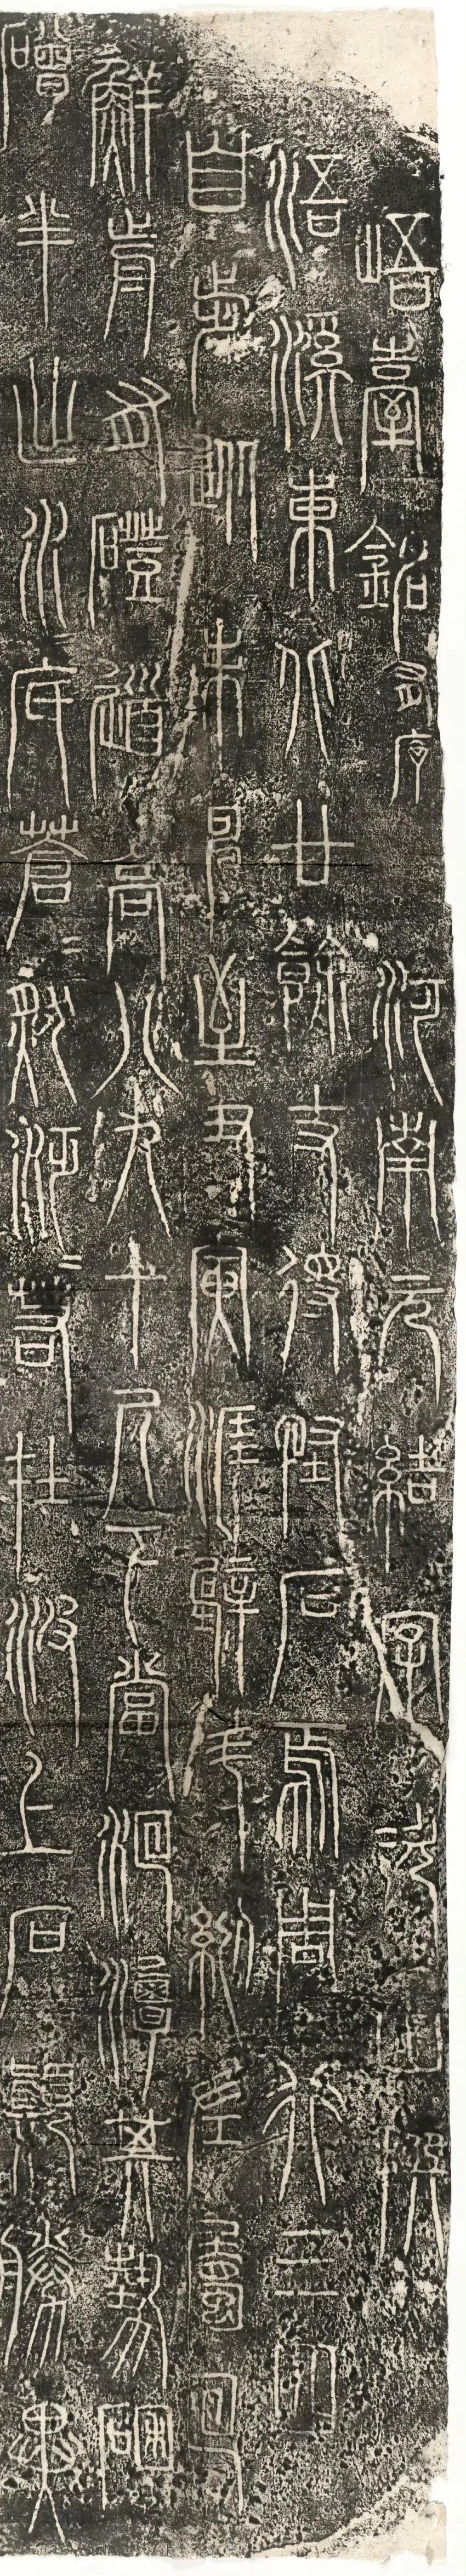 峿臺銘有序 河南元結字次山撰
浯溪東北廿餘丈得怪石焉周行三四
百步從未申至丑寅涯壁斗絕左屬回
鮮前有磴道高八九十尺下當洄潭其勢硱
磳半出水底蒼〻然泛〻若在波上石顛勝異